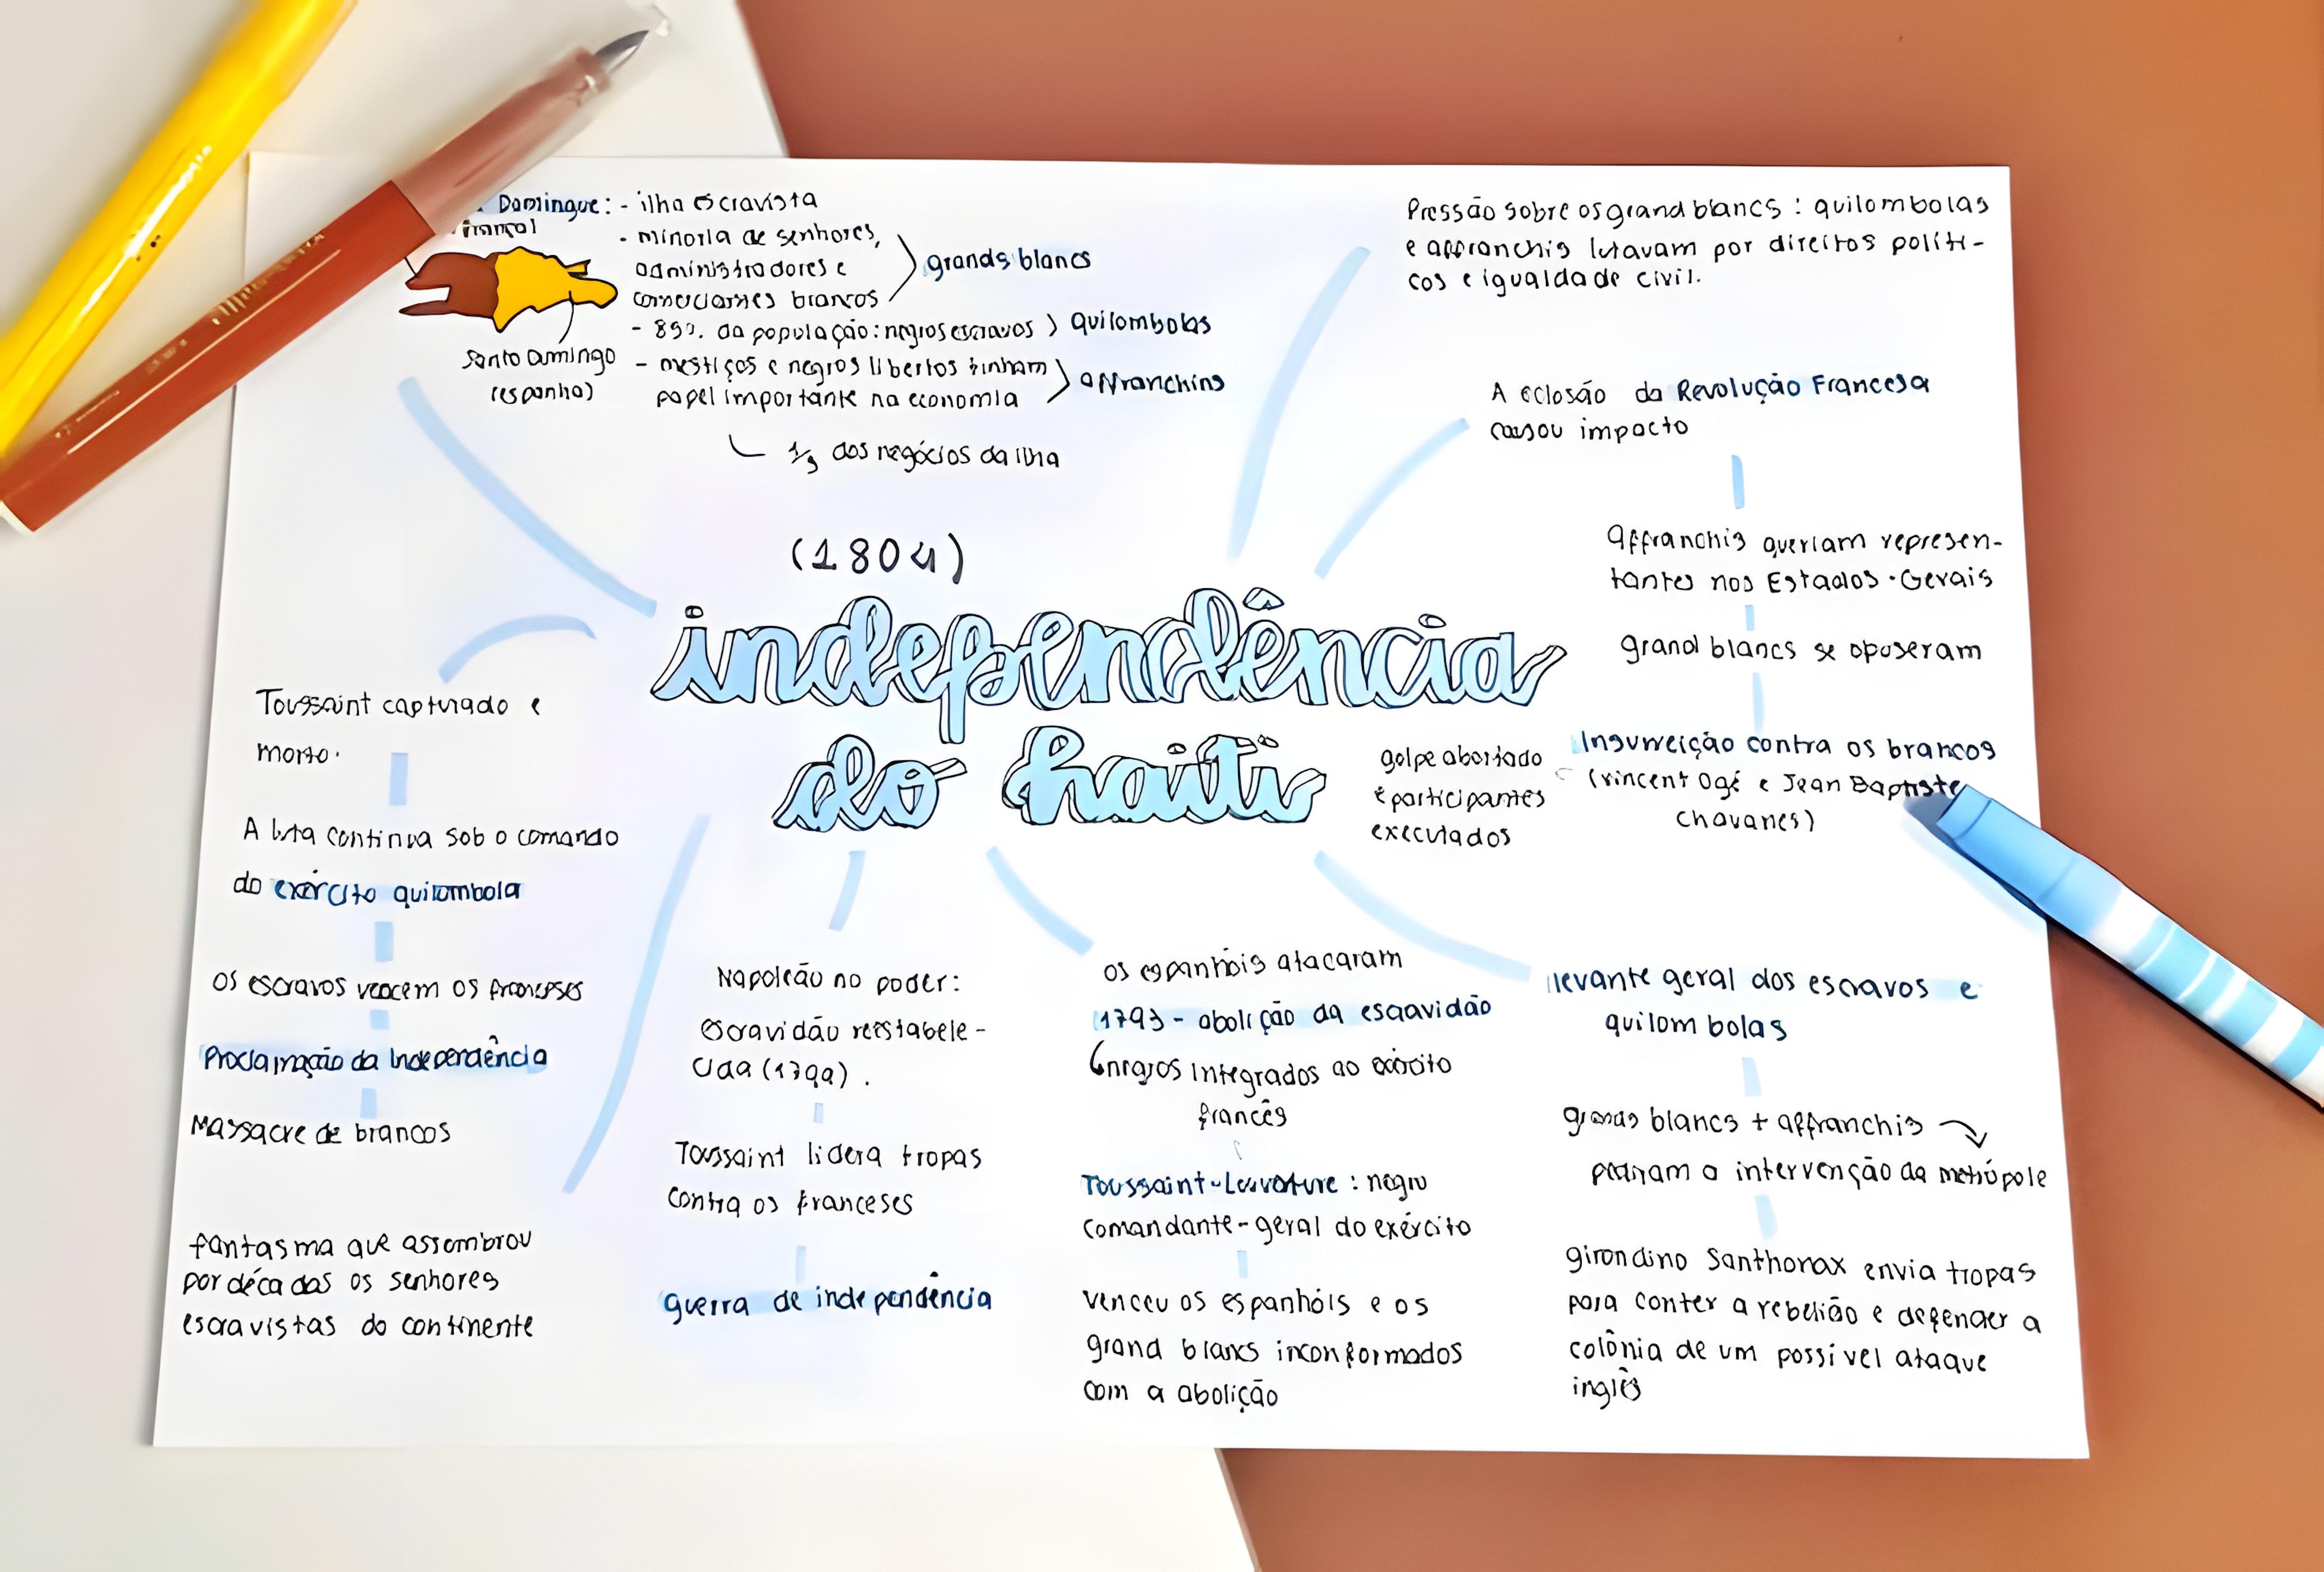 Domingue: - ilha escravista
- minoria de senhores,
administradores e
comerciantes brancos
grands blancs
- 85%. da população: negros escravos
quilombolas
- mestiços e negros libertos tinham
papel importante na economia
affranchins
1/3 dos negócios da ilha
Santo Domingo
(espanha)
Pressão sobre os grand blancs : quilombolas
e affranchis lutavam por direitos políti-
cos e igualdade civil.
A eclosão da Revolução Francesa
causou impacto
affranchis queriam represen-
tantes nos Estados-Gerais
grand blancs se opuseram
Insurreição contra os brancos
(vincent Ogé e Jean Baptiste
chavanes)
golpe abortado
e participantes
executados
(1804)
independência
do haiti
levante geral dos escravos e
quilombolas
grands blancs + affranchis
pediram a intervenção da metrópole
girondino Santhonax envia tropas
para conter a rebelião e defender a
colônia de um possível ataque
inglês
os espanhóis atacaram
1793 - abolição da escravidão
negros integrados ao exército
francês
Toussaint-Louverture : negro
comandante-geral do exército
venceu os espanhóis e os
grand blancs inconformados
com a abolição
Napoleão no poder:
Escravidão reestabele-
cida (1799).
Toussaint lidera tropas
contra os franceses
guerra de independência
Toussaint capturado e
morto.
A luta continua sob o comando
do exército quilombola
os escravos vencem os franceses
Proclamação da Independência
Massacre de brancos
fantasma que assombrou
por décadas os senhores
escravistas do continente